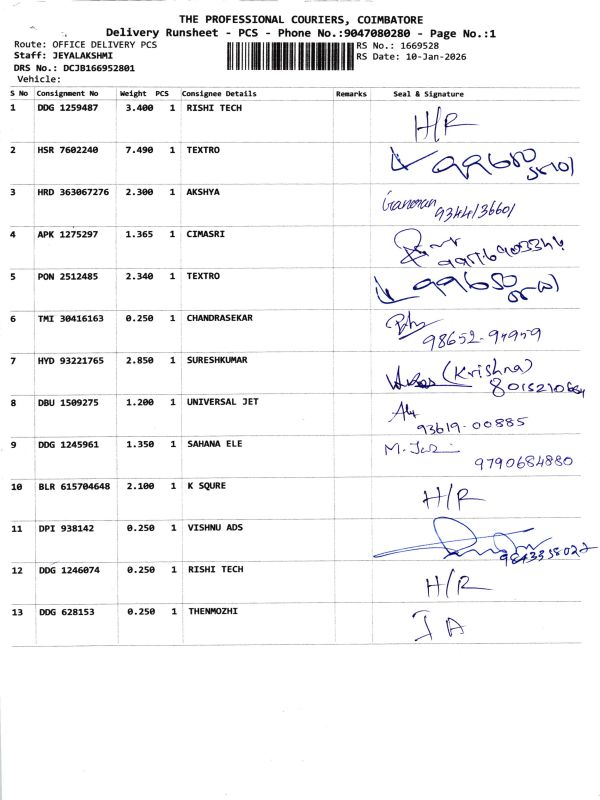 THE PROFESSIONAL COURIERS, COIMBATORE
Delivery Runsheet - PCS - Phone No.:9047080280 - Page No.:1
Route: OFFICE DELIVERY PCS
RS No.: 1669528
Staff: JEYALAKSHMI
RS Date: 10-Jan-2026
DRS No.: DCJB166952801
Vehicle:
S No Consignment No Weight PCS Consignee Details Remarks Seal & Signature
1 DDG 1259487 3.400 1 RISHI TECH H/R
2 HSR 7602240 7.490 1 TEXTRO
3 HRD 363067276 2.300 1 AKSHYA 9344136601
4 APK 1275297 1.365 1 CIMASRI
5 PON 2512485 2.340 1 TEXTRO
6 TMI 30416163 0.250 1 CHANDRASEKAR
7 HYD 93221765 2.850 1 SURESHKUMAR (Krishna)
8 DBU 1509275 1.200 1 UNIVERSAL JET 93619-00885
9 DDG 1245961 1.350 1 SAHANA ELE 9790684880
10 BLR 615704648 2.100 1 K SQURE H/R
11 DPI 938142 0.250 1 VISHNU ADS
12 DDG 1246074 0.250 1 RISHI TECH H/R
13 DDG 628153 0.250 1 THENMOZHI I A